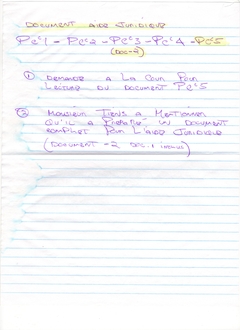 DOCUMENT AIDE JURIDIQUE
Pc'1 - Pc'2 - Pc'3 - Pc'4 - Pc'5
(DOC-2)
① DEMANDE A LA COUR POUR
LECTURE DU DOCUMENT Pc'5
② MONSIEUR TIENS A MENTIONNER
QU'IL A UN DOCUMENT
COMPLET POUR L'AIDE JURIDIQUE
(DOCUMENT - 2 DOC. 1 INCLUS)